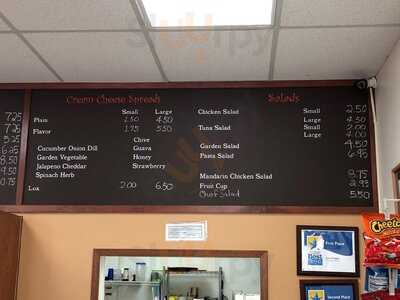 7.25
7.75
5.25
6.25
8.50
9.50
0.75
Cream Cheese Spreads
Small Large
Plain 1.50 4.50
Flavor 1.75 5.50
Chive
Cucumber Onion Dill Guava
Garden Vegetable Honey
Jalapeno Cheddar Strawberry
Spinach Herb
Lox 2.00 6.50
Salads
Chicken Salad Small 2.50
Large 4.50
Tuna Salad Small 2.00
Large 4.00
Garden Salad 4.50
Pasta Salad 6.95
Mandarin Chicken Salad 8.75
Fruit Cup 2.95
Chef Salad 5.50
First Place
Best
Second Place
Cheetos